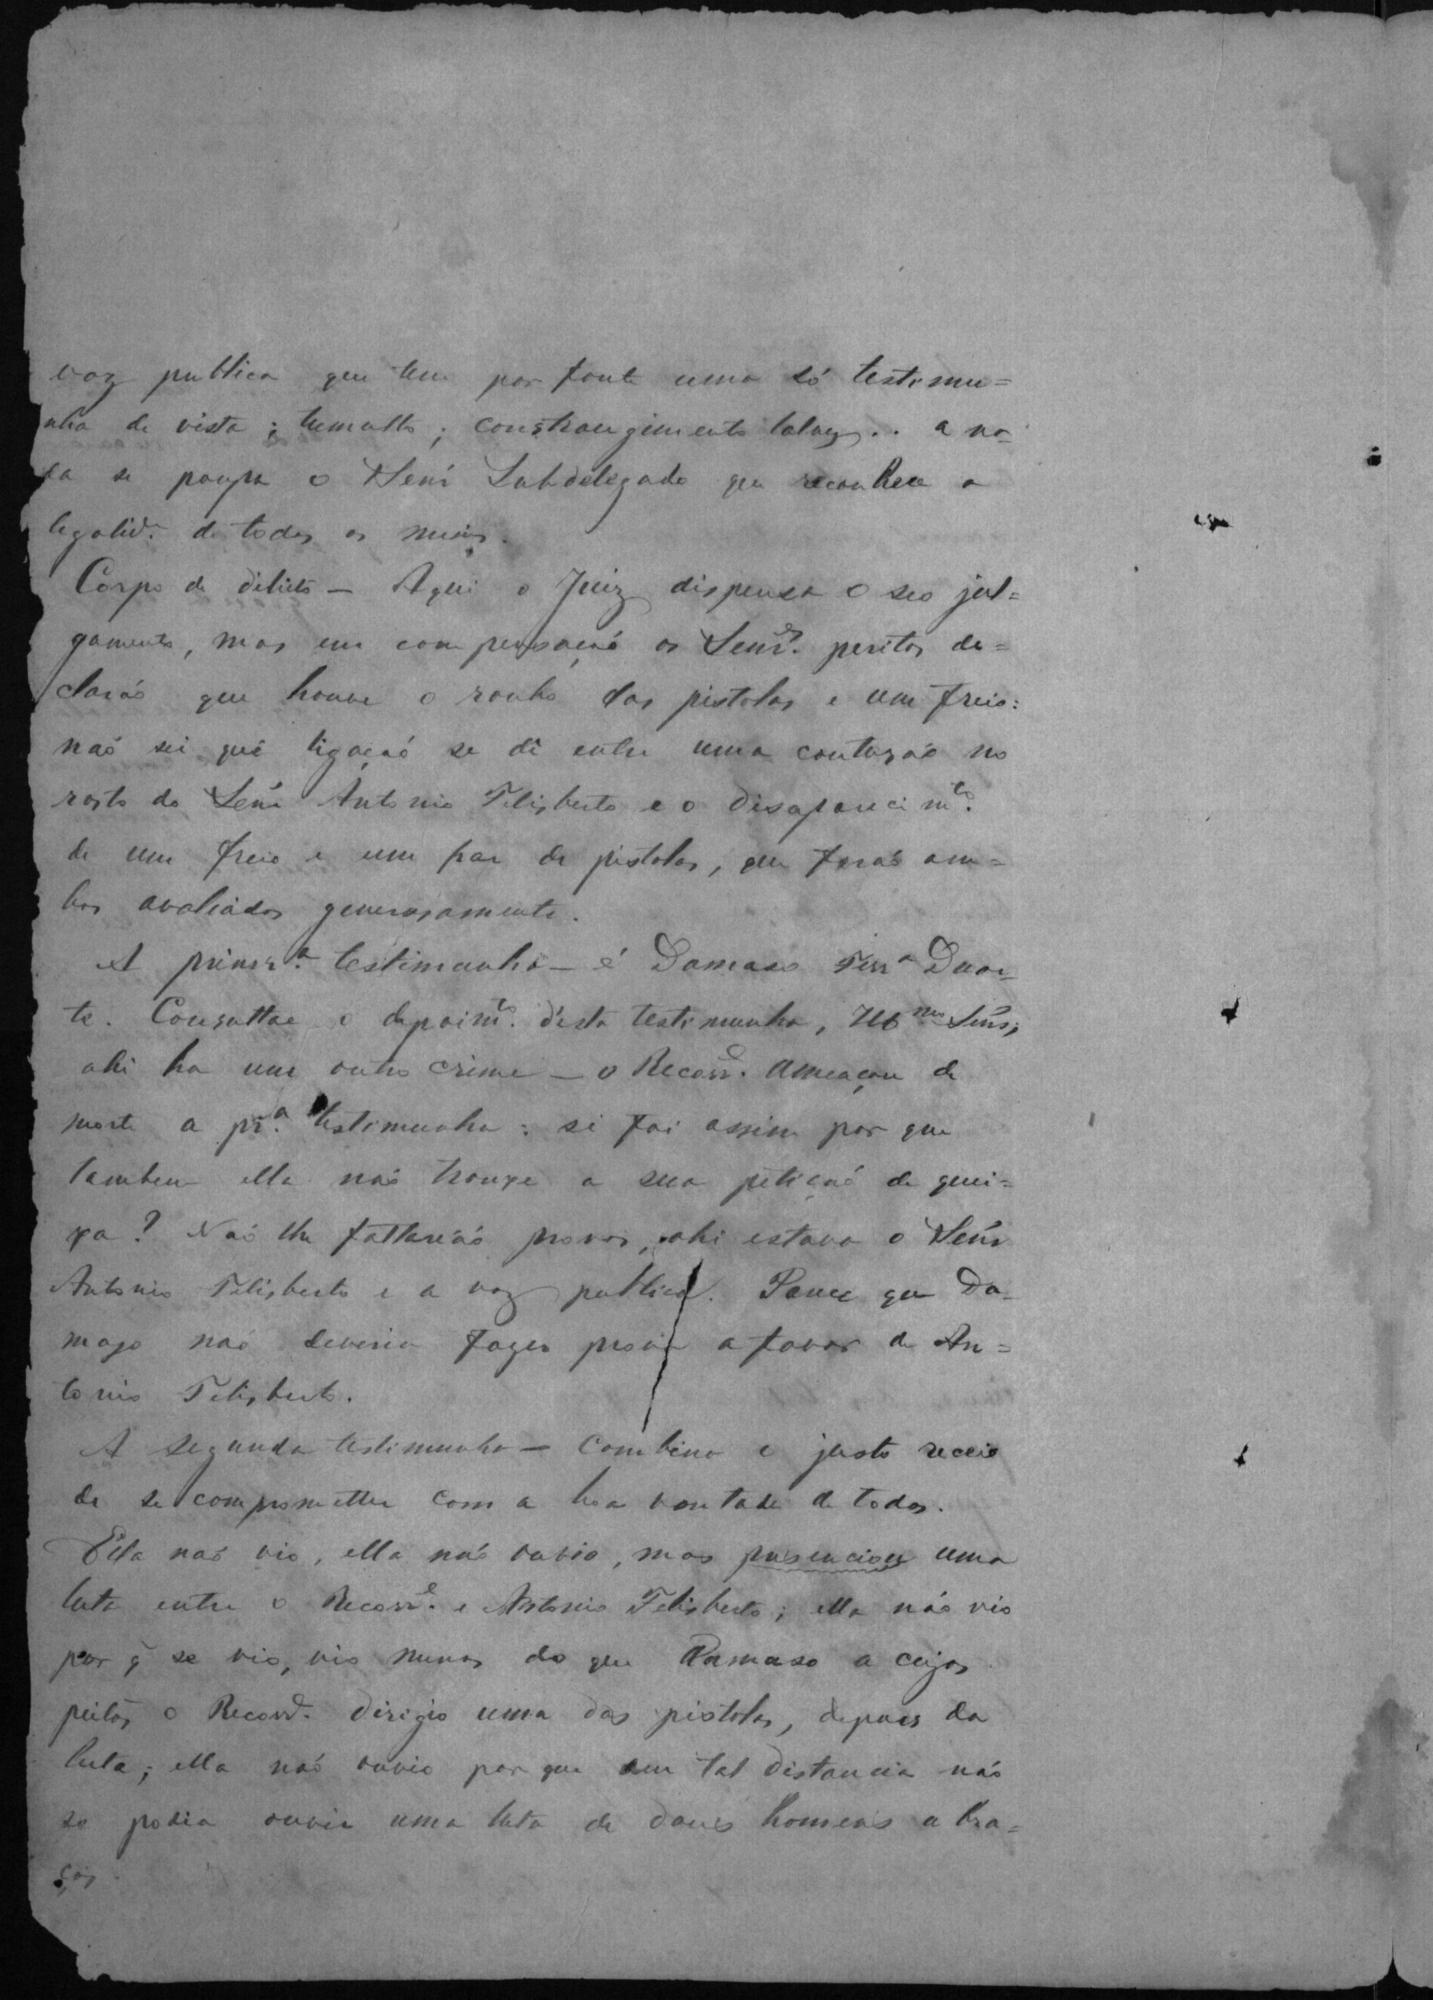 voz publica que tem por fonte uma só testemu=
nha de vista; tumulto; constrangimento talvez.. a na-
da se poupa o Senr Subdelegado que reconhece a
legalid.e de todos os meios.
Corpo de delicto — Aqui o Juiz dispensa o seo jul=
gamento, mas em compensação os Senr.es peritos de=
clarão que houve o roubo das pistolas e um freio:
não sei que ligação se dê entre uma contusão no
rosto do Senr Antonio Felisberto e o disaparecim.to
de um freio e um par de pistolas, que forão am=
bos avaliados generosamente.
A primr.a testimunha — é Damaso Ferr.a Duar-
te. Consultae o depoim.to d'esta testimunha, Ill.mos Senrs,
ahi ha um outro crime — o Recorr.e ameaçou de
morte a pr.a testimunha: si foi assim por que
tambem ella não trouxe a sua petição de quei=
xa? Não lhe faltarião provas, ahi estava o Senr
Antonio Felisberto e a voz publica. Parece que Da-
maso não deveria fazer prova a favor de An=
tonio Felisberto.
A segunda testimunha — combina o justo receio
de se comprometter com a boa vontade de todos.
Ella não vio, ella não ouvio, mas presenciou uma
luta entre o Recorr.e e Antonio Felisberto; ella não vio
por q̃ se vio, vio menos do que Damaso a cujos
peitos o Recorr.e dirigio uma das pistolas, depois da
luta; ella não ouvio por que em tal distancia não
se podia ouvir uma luta de dous homens a bra=
ços